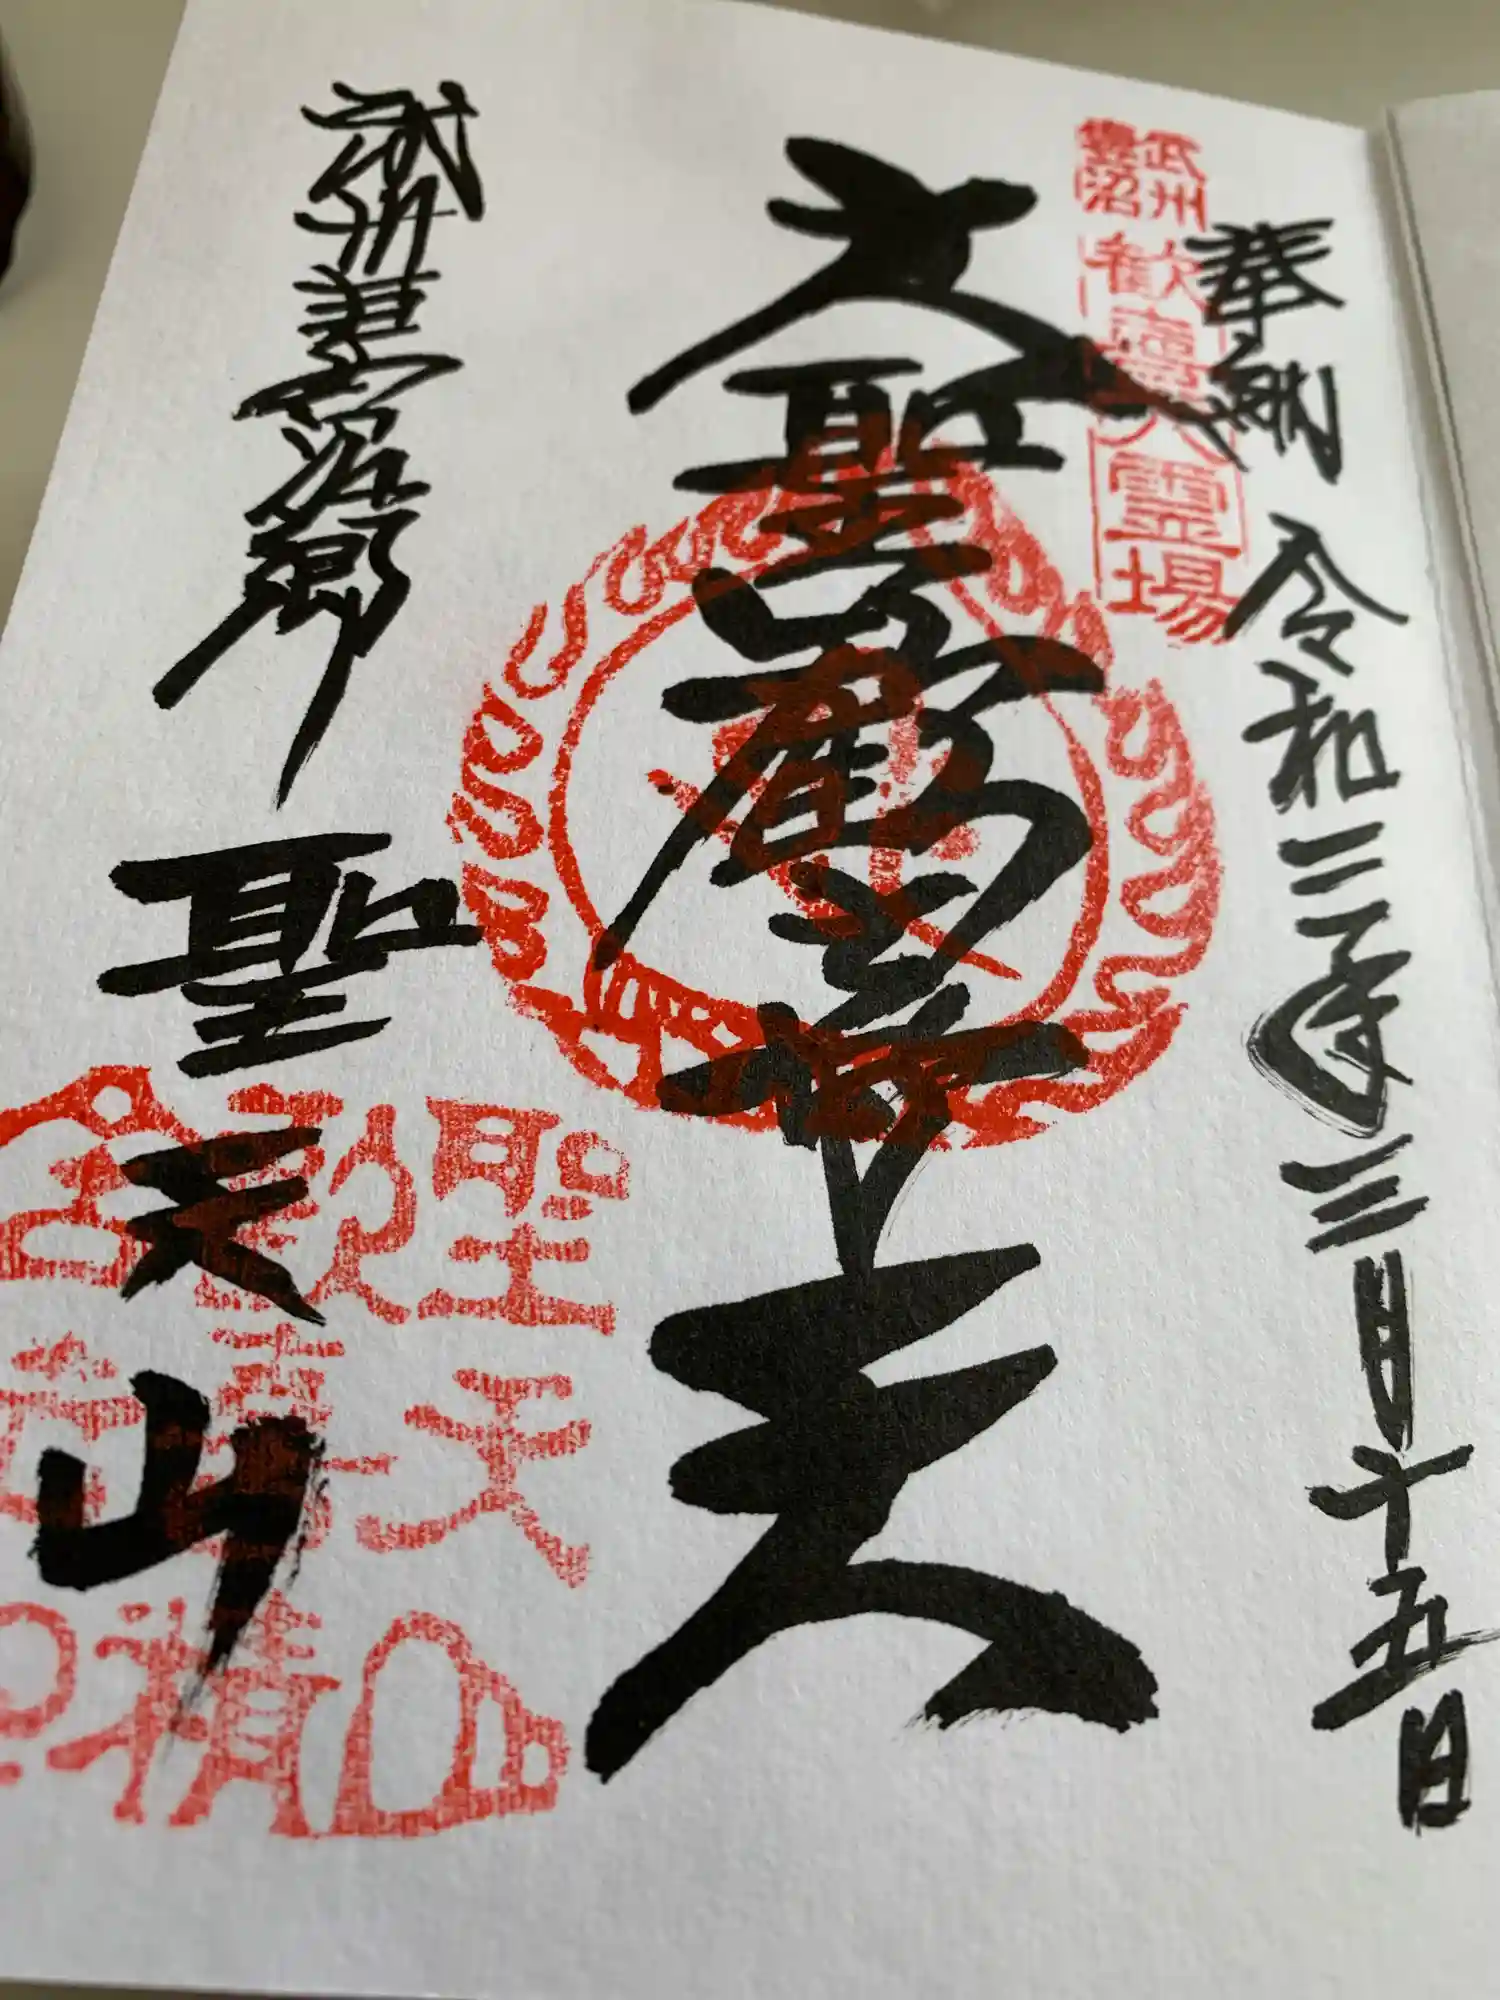 奉納 令和二年三月十五日
武州
妻沼
歓喜天霊場
大聖歓喜天
武州妻沼郷
聖天山
聖天山
歓喜